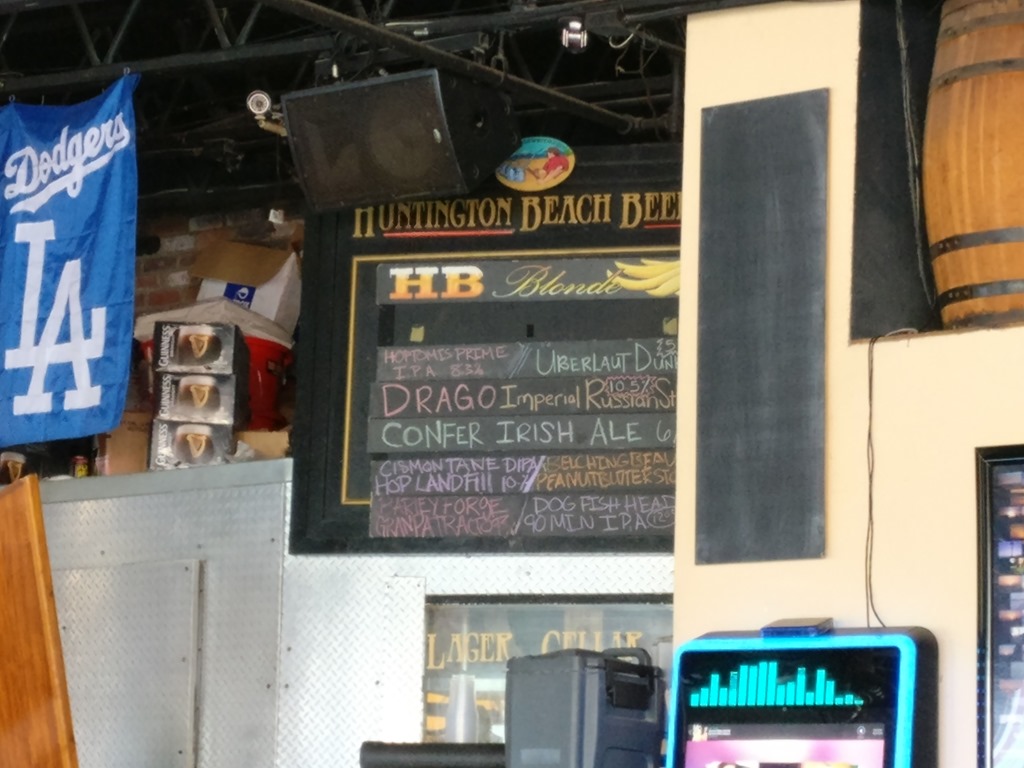 Dodgers
LA
HUNTINGTON BEACH BEE
HB Blonde
HOPTOMIS PRIME
IPA 8.5%
ÜBERLAUT DUN
DRAGO Imperial Russian St
10.5%
CONFER IRISH ALE 6
CISMONTANE DIPA
HOP LANDFILL 10%
BELCHING BEAV
PEANUT BUTTER STO
DOG FISH HEAD
90 MIN IPA
GUINNESS
GUINNESS
GUINNESS
LAGER CELLAR